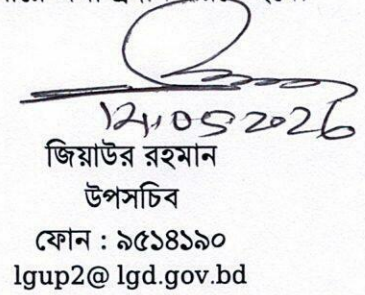 12.05.2026
জিয়াউর রহমান
উপসচিব
ফোন : ৯৫১৪১৯০
lgup2@ lgd.gov.bd